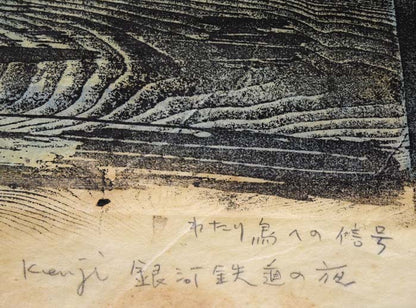 わたり鳥への信号
Kenji 銀河鉄道の夜